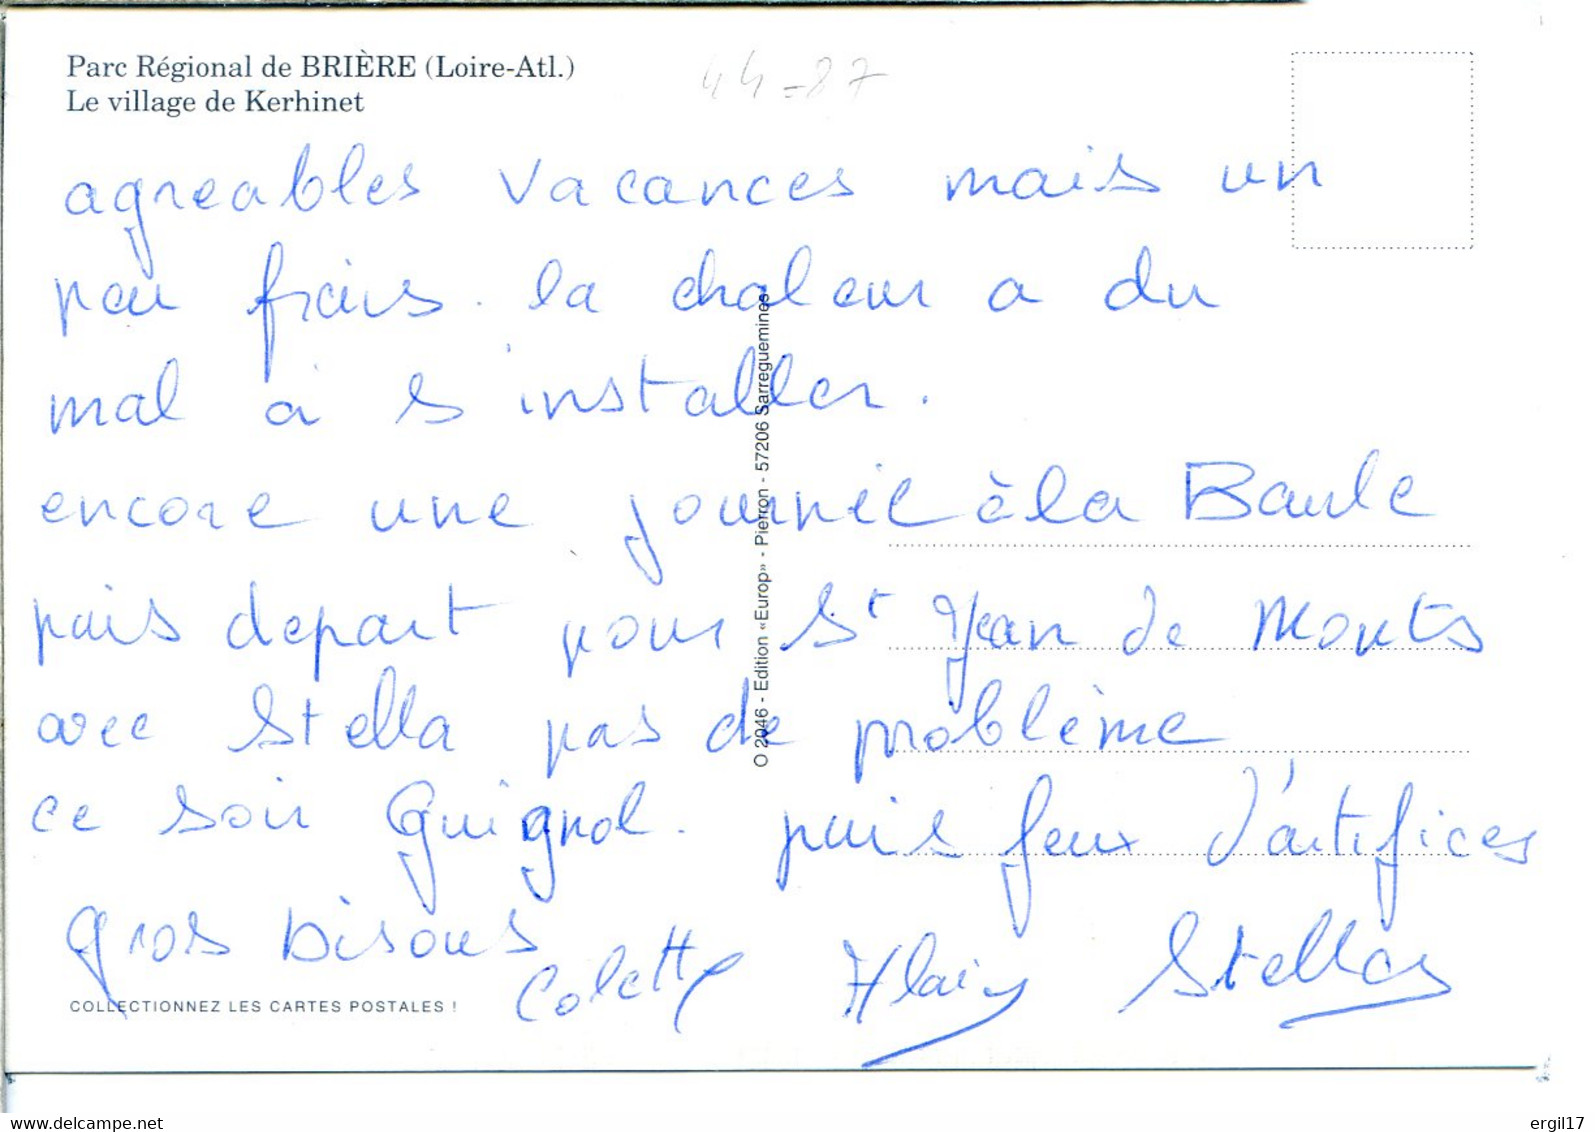 Parc Régional de BRIÈRE (Loire-Atl.)
Le village de Kerhinet
44-87
agreables vacances mais un
peu frais. la chaleur a du
mal à s'installer.
encore une journée à la Baule
puis depart pour St Jean de Monts
avec Stella pas de problème
ce soir Guignol. puis feux d'artifices
gros bisous
Colette Alain Stella
COLLECTIONNEZ LES CARTES POSTALES !
O 2046 - Edition «Europ» - Pierron - 57206 Sarreguemines
www.delcampe.net
ergil17